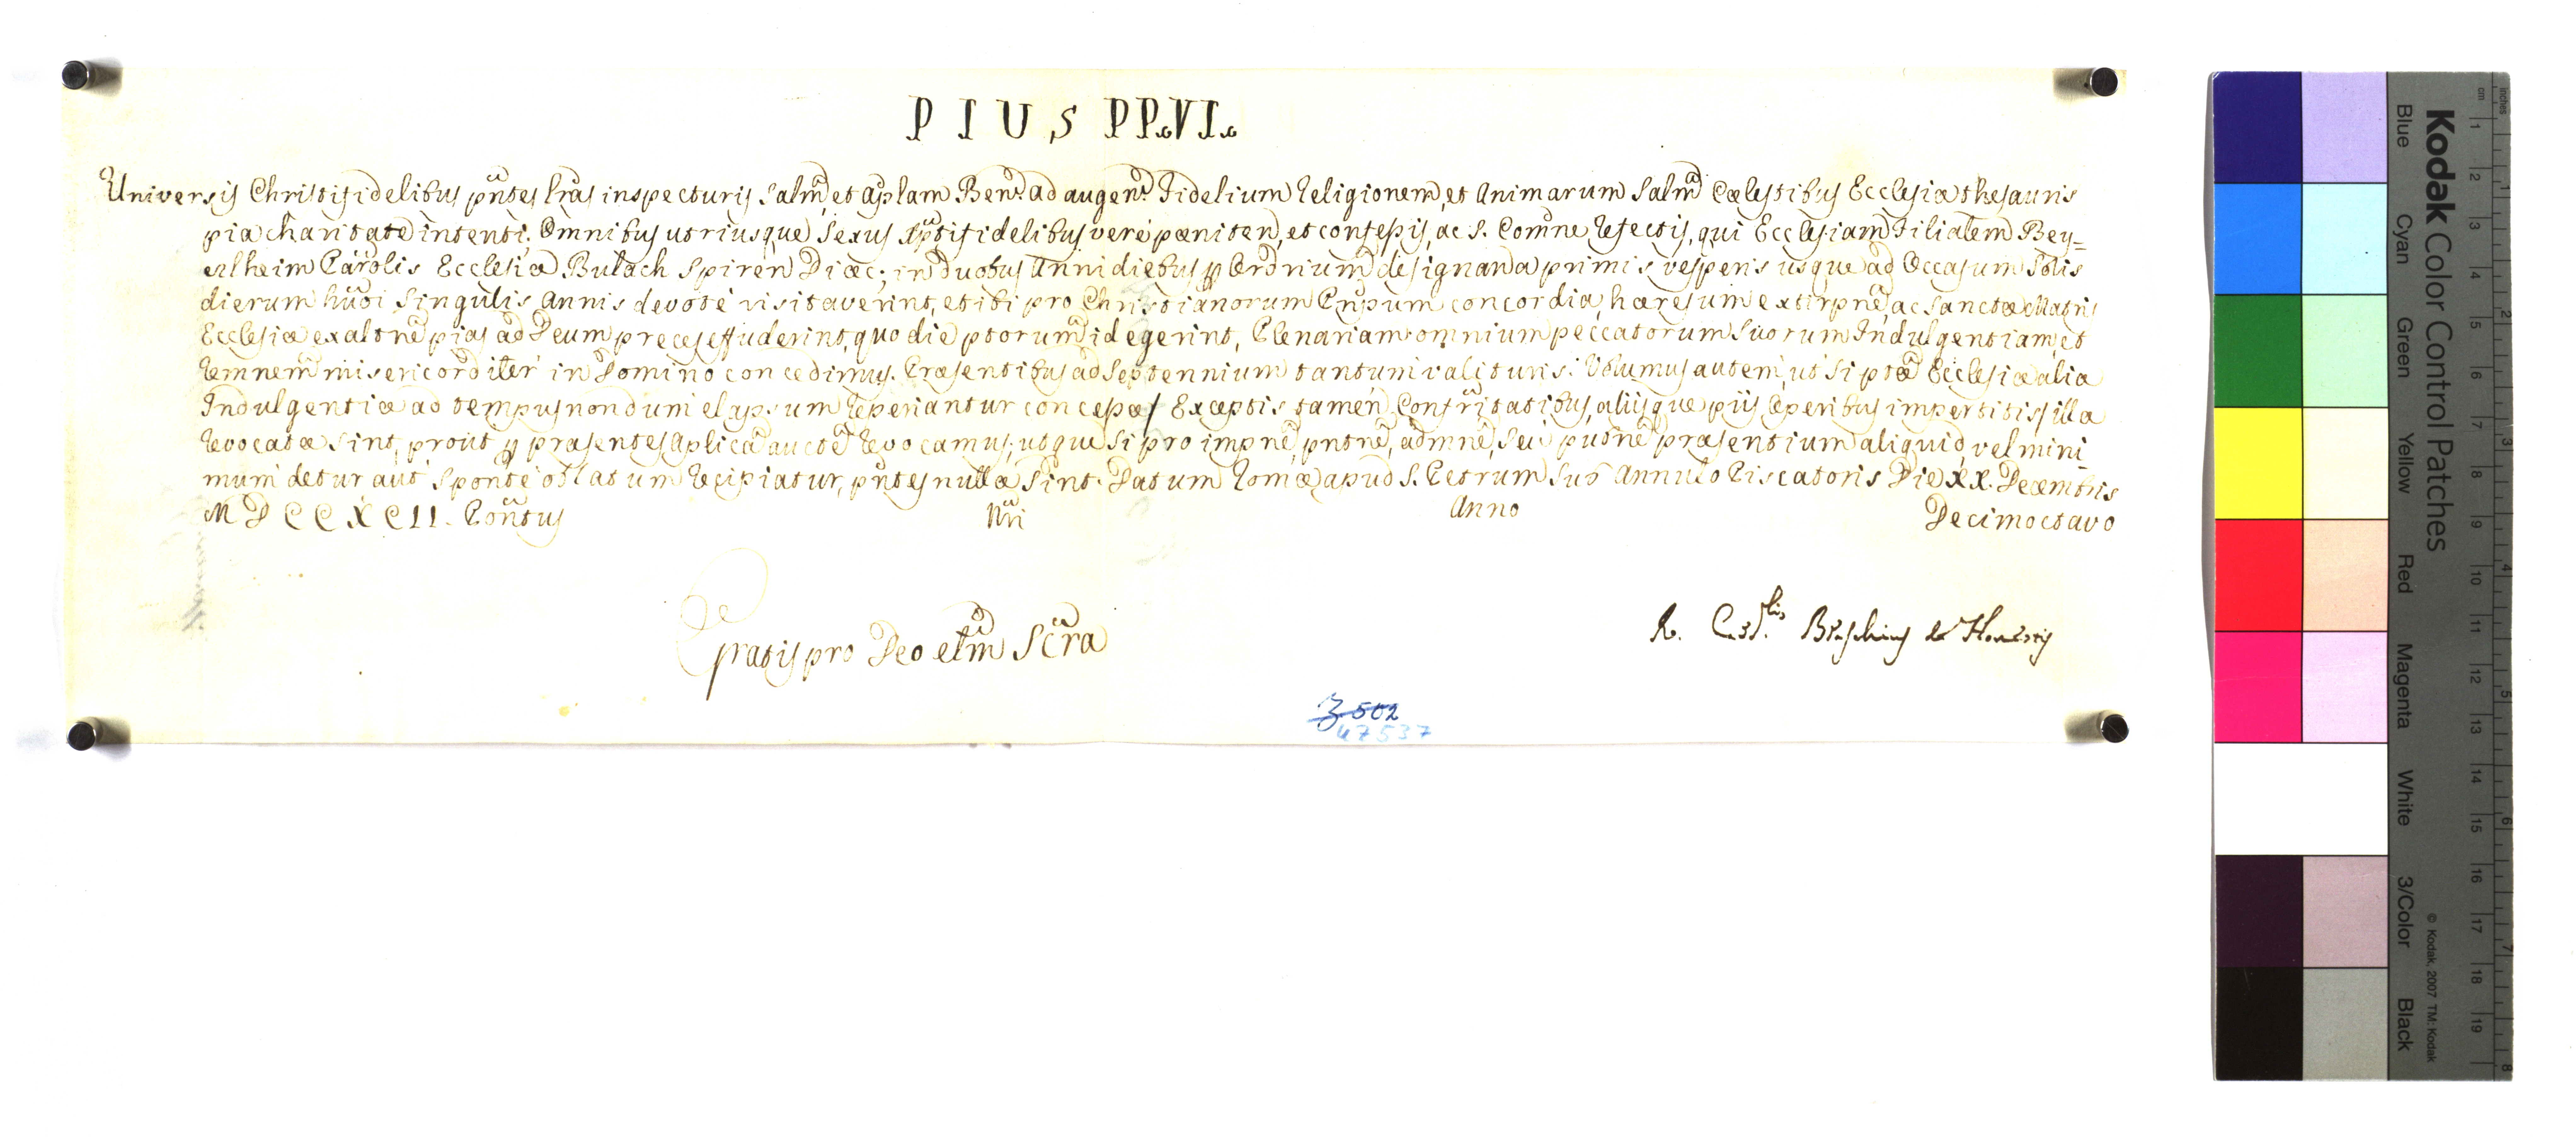 PIUS PP. VI.
Universis Christifidelibus pñtes lr̃as inspecturis Salm̃, et aplam Benẽ. ad augenẽ. Fidelium Religionem, et Animarum Salm̃ Cœlestibus Ecclesiæ thesauris
pia charitate intenti. Omnibus utriusque Sexus Xp̃tifidelibus verè pœniten, et confessis, ac S. Com̃ne refectis, qui Ecclesiam Filialem Bey=
ertheim Parolis Ecclesiæ Bulach Spiren Diœc; in duobus Anni diebus p Ordrium designanda primis vesperis usque ad Occasum Solis
dierum hũoi singulis Annis devotè visitaverint, et ibi pro Christianorum Pñpum concordia, hæresum extirpñe, ac Sanctæ Matris
Ecclesiæ exaltñe pias ad Deum preces effuderint, quo die ptorum id egerint, Plenariam omnium peccatorum suorum Indulgentiam, et
remnem misericorditer in Domino concedimus. Præsentibus ad Septennium tantum valituris. Volumus autem, ut si ptæ Ecclesiæ aliæ
Indulgentiæ ad tempus nondum elapsum reperiantur concessæ / Exceptis tamen Confr̃itatibus, aliisque piis Operibus impertitis / illæ
revocatæ sint, prout p præsentes Aplica auctẽ revocamus; utque si pro impñe, pntñe, admñe, seu putñe præsentium aliquid vel mini
mum detur aut sponte oblatum recipiatur, pñtes nullæ sint. Datum Romæ apud S. Petrum sub Annulo Piscatoris Die XX. Decembris
MDCCXCII. Pontũs Nr̃i Anno Decimoctavo
Gratis pro Deo etm̃ Scr̃a
R. Card.lis Braschius de Honestis
Z 502
47537
Kodak Color Control Patches
Blue Cyan Green Yellow Red Magenta White 3/Color Black
© Kodak, 2007 TM: Kodak
cm 1 2 3 4 5 6 7 8 9 10 11 12 13 14 15 16 17 18 19
inches 1 2 3 4 5 6 7 8